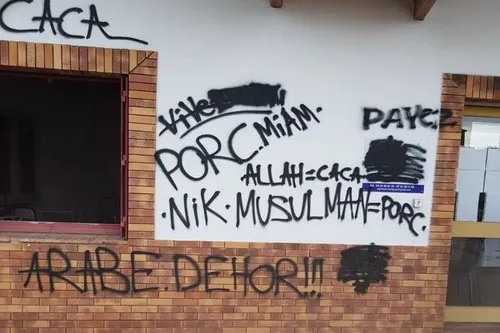 CACA
ViVe
PORC. MIAM.
PAYEZ
ALLAH=CACA
.NIK.MUSULMAN=PORC.
ARABE.DEHOR!!!